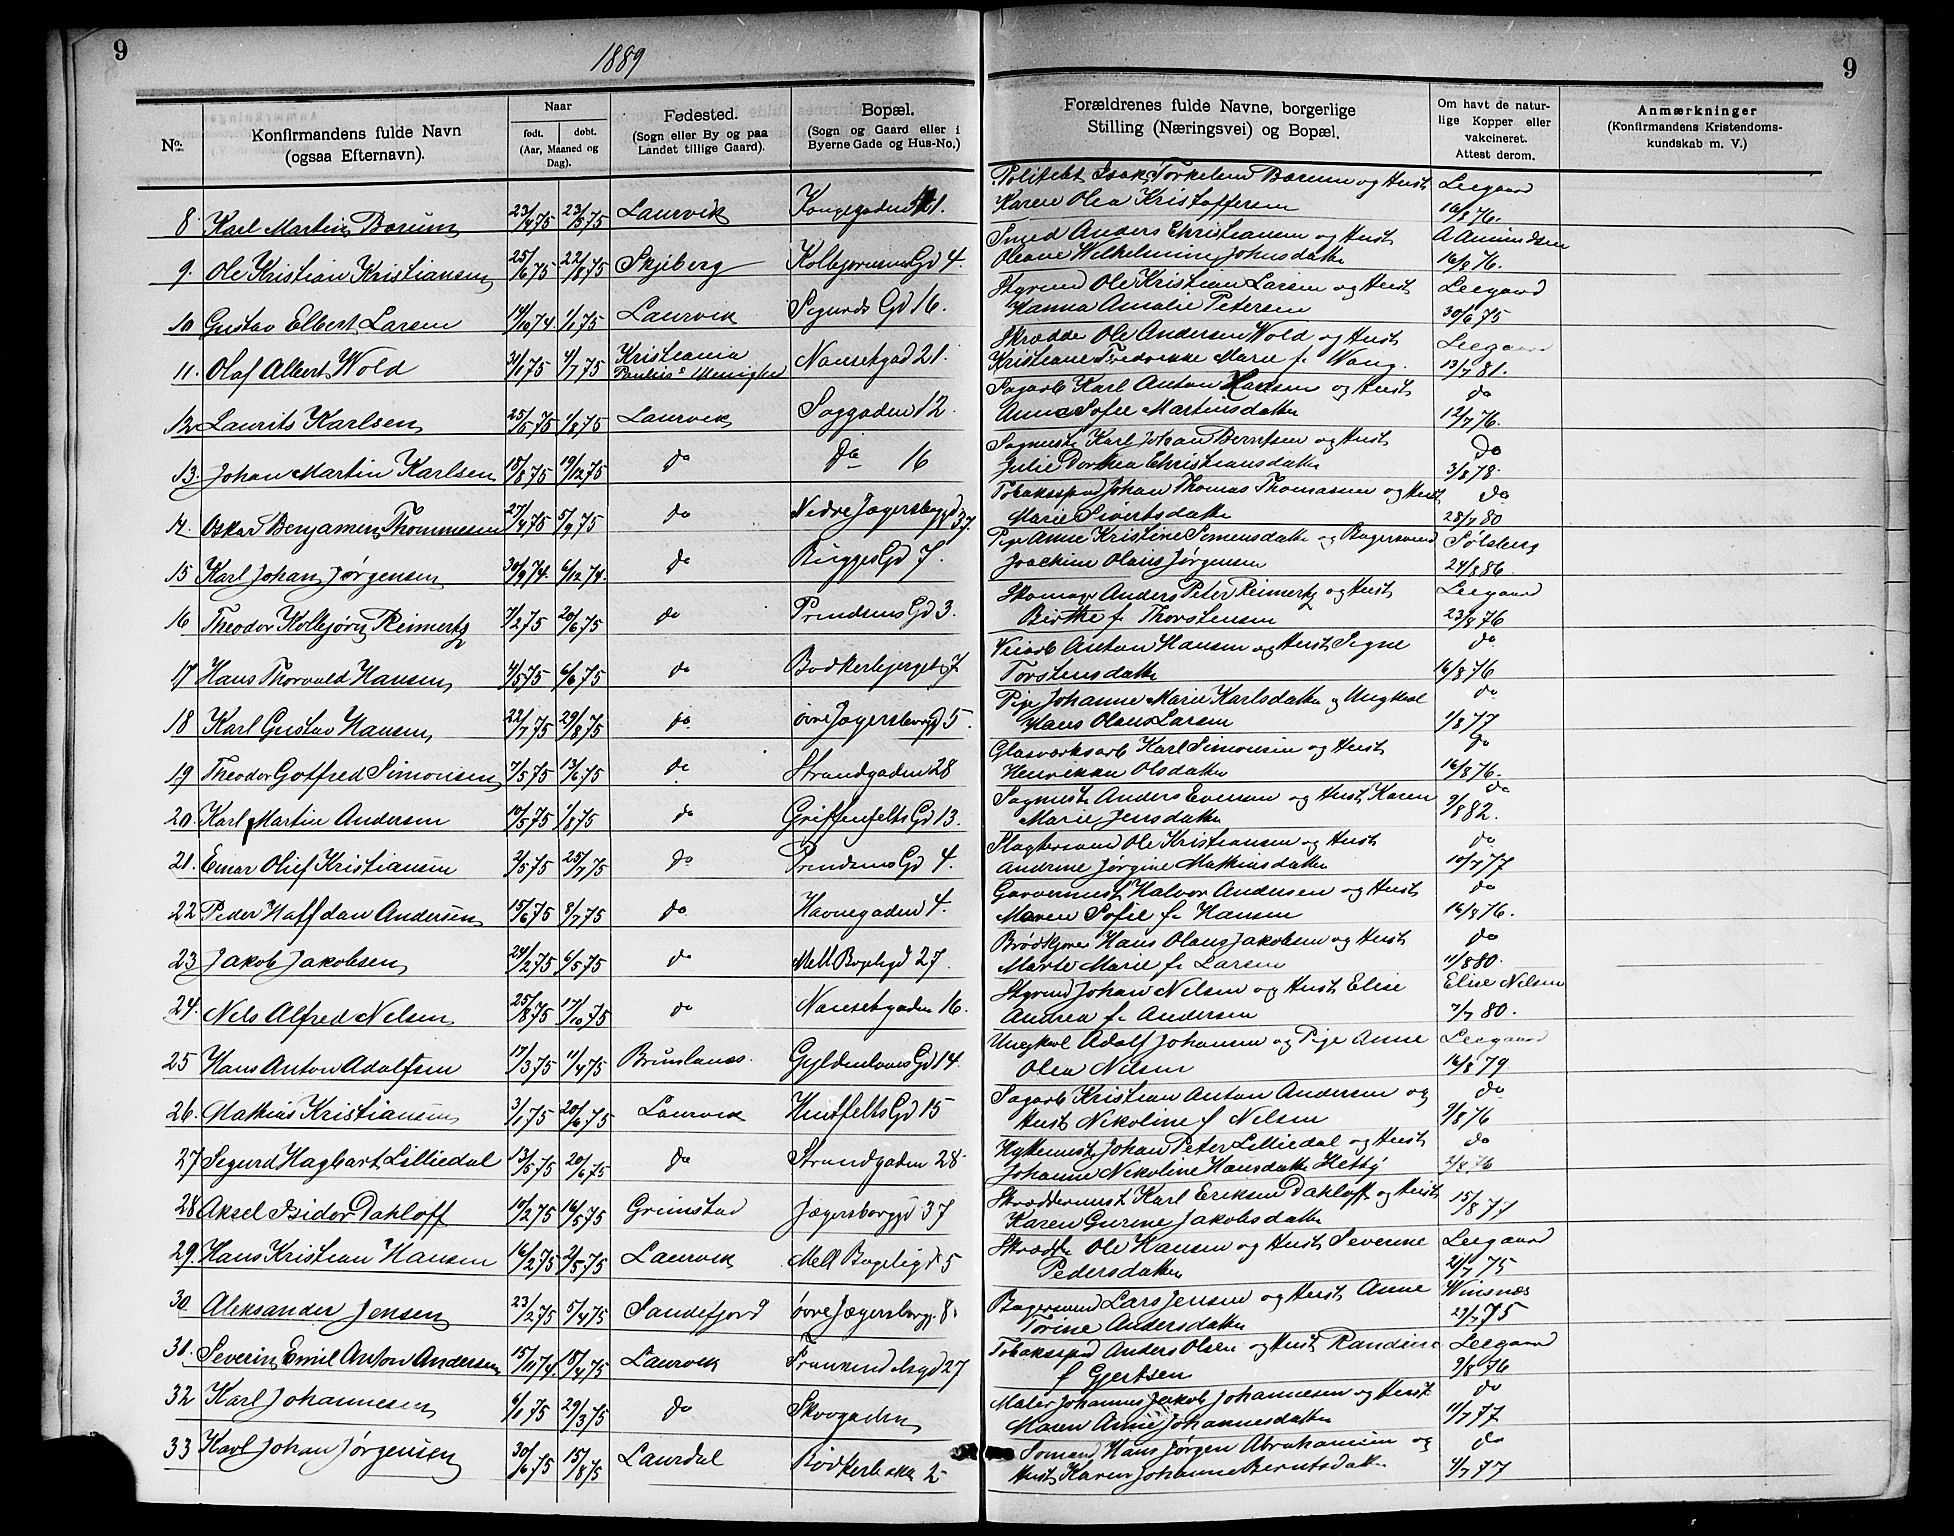 9
1889
9
No.
Konfirmandens fulde Navn
(ogsaa Efternavn).
Naar
født. døbt.
(Aar, Maaned og Dag).
Fødested.
(Sogn eller By og paa Landet tillige Gaard).
Bopæl.
(Sogn og Gaard eller i Byerne Gade og Hus-No.)
Forældrenes fulde Navne, borgerlige
Stilling (Næringsvei) og Bopæl.
Om havt de natur-
lige Kopper eller
vakcineret.
Attest derom.
Anmærkninger
(Konfirmandens Kristendoms-
kundskab m. V.)
8. Karl Martin Barum 23/4 75 23/5 75 Laurvik Kongegaden 21. Politibt Isak Torkelsen Barum og Hust Leegaard
Karen Olea Kristoffersen 16/8 76.
9. Ole Kristian Kristiansen 25/6 75 22/8 75 Skjeberg Kolbjørnsens Gd 4. Smed Anders Christiansen og Hust A Amundsen
Oleave Wilhelmine Johnsdatter 16/8 76.
10 Gustav Elbert Larsen 19/10 74. 1/1 75 Laurvik Sigurds Gd 16. Styrmd Ole Kristian Larsen og Hust Leegaard
Hanna Amalie Petersen 30/6 75
11. Olaf Albert Wold 31/1 75 4/7 75 Kristiania Paulus's Menighed Nansetgad 21. Skrædde Ole Andersen Wold og Hust Leegaard
Kristiane Fredrikke Marie f. Wang. 13/7 81.
12 Laurits Karlsen 25/5 75 1/8 75 Laurvik Saggaden 12. Sagarb Karl Anton Hansen og Hust do
Anna Sofie Martinsdatter 12/7 76.
13. Johan Martin Karlsen 18/8 75 19/12 75 do do 16 Sagmest Karl Johan Berntsen og Hust do
Julie Dorthea Christiansdatter 3/8 78.
14. Oskar Benjamin Thommesen 27/4 75 5/9 75 do Nedre Jægersborggd 37. Tobakssp Johan Thomas Thomassen og Hust do
Marie Sivertsdatter 28/7 80
15 Karl Johan Jørgensen 30/9 74. 6/12 74. do Bugges Gd 7. Pige Anne Kristine Simensdatter og Bagersvend Sølsberg
Joachim Olaus Jørgensen 24/8 86.
16 Theodor Kolbjørn Reimertz 7/2 75 20/6 75 do Prindsens Gd 3. Skomagr Anders Peter Reimertz og Hust Leegaard
Birthe f. Thorstensen 23/8 76
17 Hans Thorvald Hansen 4/5 75 6/6 75 do Bødkerbjerget 7 Veiarb Anton Hansen og Hust Signe do
Torstensdatter 16/8 76
18 Karl Gustav Hansen 22/7 75 29/8 75 do øvre Jægersborggd 5. Pige Johanne Marie Karlsdatter og Ungkarl do
Hans Olaus Larsen 1/8 77
19 Theodor Gotfred Simonsen 7/5 75 13/6 75 do Strandgaden 28 Glasværksarb Karl Simonsen og Hust do
Henrikka Olsdatter 16/8 76.
20. Karl Martin Andersen 10/5 75 1/8 75 do Griffenfelts Gd 13. Sagmest Anders Evensen og Hust Karen do
Marie Jensdatter 9/8 82.
21. Einar Oluf Kristiansen 2/5 75 25/7 75 do Prindsens Gd 4. Slagtersvnd Ole Kristiansen og Hust do
Andrine Jørgine Mathiasdatter 10/7 77
22 Peder Halfdan Andersen 15/6 75 8/7 75 do Havnegaden 4. Garvermest Halvor Andersen og Hust do
Maren Sofie f. Hansen 16/8 76.
23 Jakob Jakobsen 24/2 75 6/5 75 do Mell Bøgeligd 27. Brødkjører Hans Olaus Jakobsen og Hust do
Marte Marie f. Larsen 11/8 80.
24. Nils Alfred Nilsen 25/8 75 17/10 75 do Nansetgaden 16. Styrmd Johan Nilsen og Hust Elise Elise Nilsen
Andrea f. Andersen 7/7 80.
25 Hans Anton Adolfsen 17/3 75 11/4 75 Brunlanæs. Gyldenløves Gd 14. Ungkarl Adolf Johansen og Pige Anne Leegaard
Olea Nilsen 16/8 79.
26. Mathias Kristiansen 3/1 75 20/6 75 Laurvik Huitfelts Gd 15 Sagarb Kristian Anton Andersen og do
Hust Nikoline f Nilsen 9/8 76
27 Sigurd Hagbart Lilliedal 13/5 75 20/6 75 do Strandgaden 28. Hyttemest Johan Peter Lilliedal og Hust do
Johanne Nikoline Hansdatter Hetty 2/8 76
28 Aksel Isidor Dahloff 10/2 75 16/5 75 Grimstad Jægersborggd 37 Skræddermest Karl Eriksen Dahloff og Hust 15/8 77
Karen Gurine Jakobsdatter
29. Hans Kristian Hansen 16/2 75 2/5 75 Laurvik Mell Bøgeligd 5 Skrædde Ole Hansen og Hust Severine Leegaard
Pedersdatter 21/7 75
30 Aleksander Jensen 23/2 75 5/4 75 Sandefjord øvre Jægersborgg. 8. Bagersvend Lars Jensen og Hust Anne Winsnæs
Torine Andersdatter 29/7 75
31. Severin Emil Anton Andersen 15/11 74. 18/4 75 Laurvik 27 Tobakssp Anders Olsen og Hust Randine Leegaard
f Gjertsen 9/8 76
32 Karl Johannesen 6/1 75 29/3 75 do Skovgaden Maler Johannes Jakob Johannesen og Hust do
Maren Anne Johannesdatter 11/7 77
33 Karl Johan Jørgensen 30/6 75 15/8 75 Laurdal Bødkerbakk 2 Sømand Hans Jørgen Abrahamsen og do
Hust Karen Johanne Berntsdatter 4/7 77